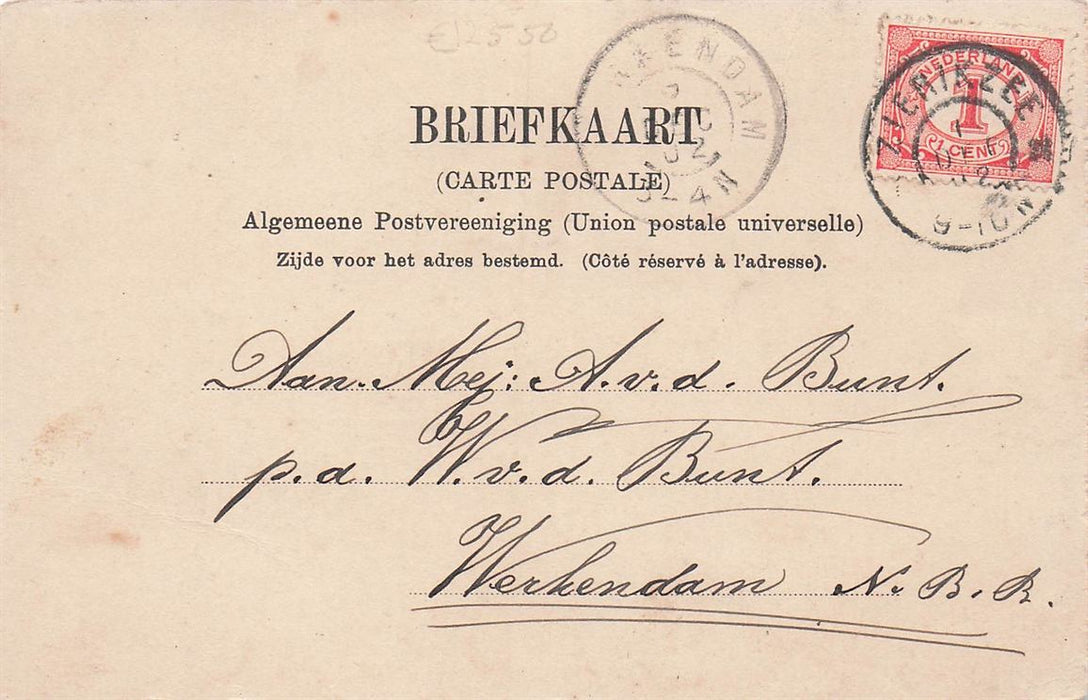 € 2550
NEDERLAND
1
1 CENT
BRIEFKAART
(CARTE POSTALE)
Algemeene Postvereeniging (Union postale universelle)
Zijde voor het adres bestemd. (Côté réservé à l'adresse).
Aan. Mej: A. v. d. Bunt.
p. d. W. v. d. Bunt.
Werkendam N. B. R.